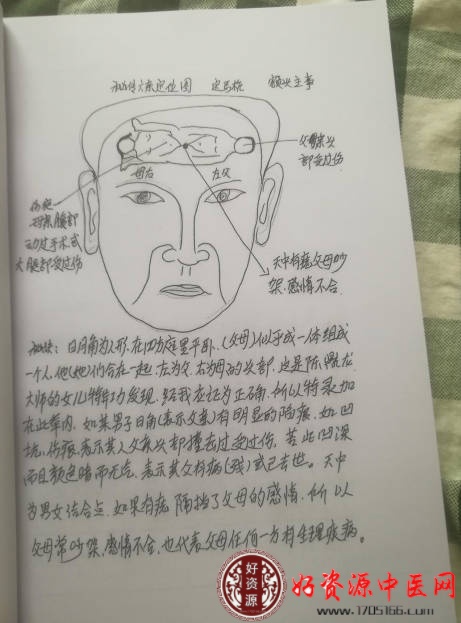 秘传六亲定位图 定马格 额头主事
父母亲头
部受过伤
母右
左父
伤疤
母亲腹部
动过手术或
大腿部受过伤
天中有痣父母吵
架感情不合
秘诀：日月角为人形，在四方庭里平卧，(父母)似乎成一体组成
一个人，他(她)们合在一起，左为父，右为母的头部，这是陈
大师的女儿特功发现，经我应证为正确，所以特录加
在此章内，如某男子日角(表示父亲)有明显的陷痕，如凹
坑，伤痕，表示其人父亲头部撞击过受过伤，若此凹深
而且颜色暗而无光，表示其父有病(残)或已去世。天中
为男女结合点，如果有痣，隔挡了父母的感情，所以
父母常吵架，感情不合，也代表父母任何一方有生理疾病。
好资源
好资源中医网
www.1705166.com